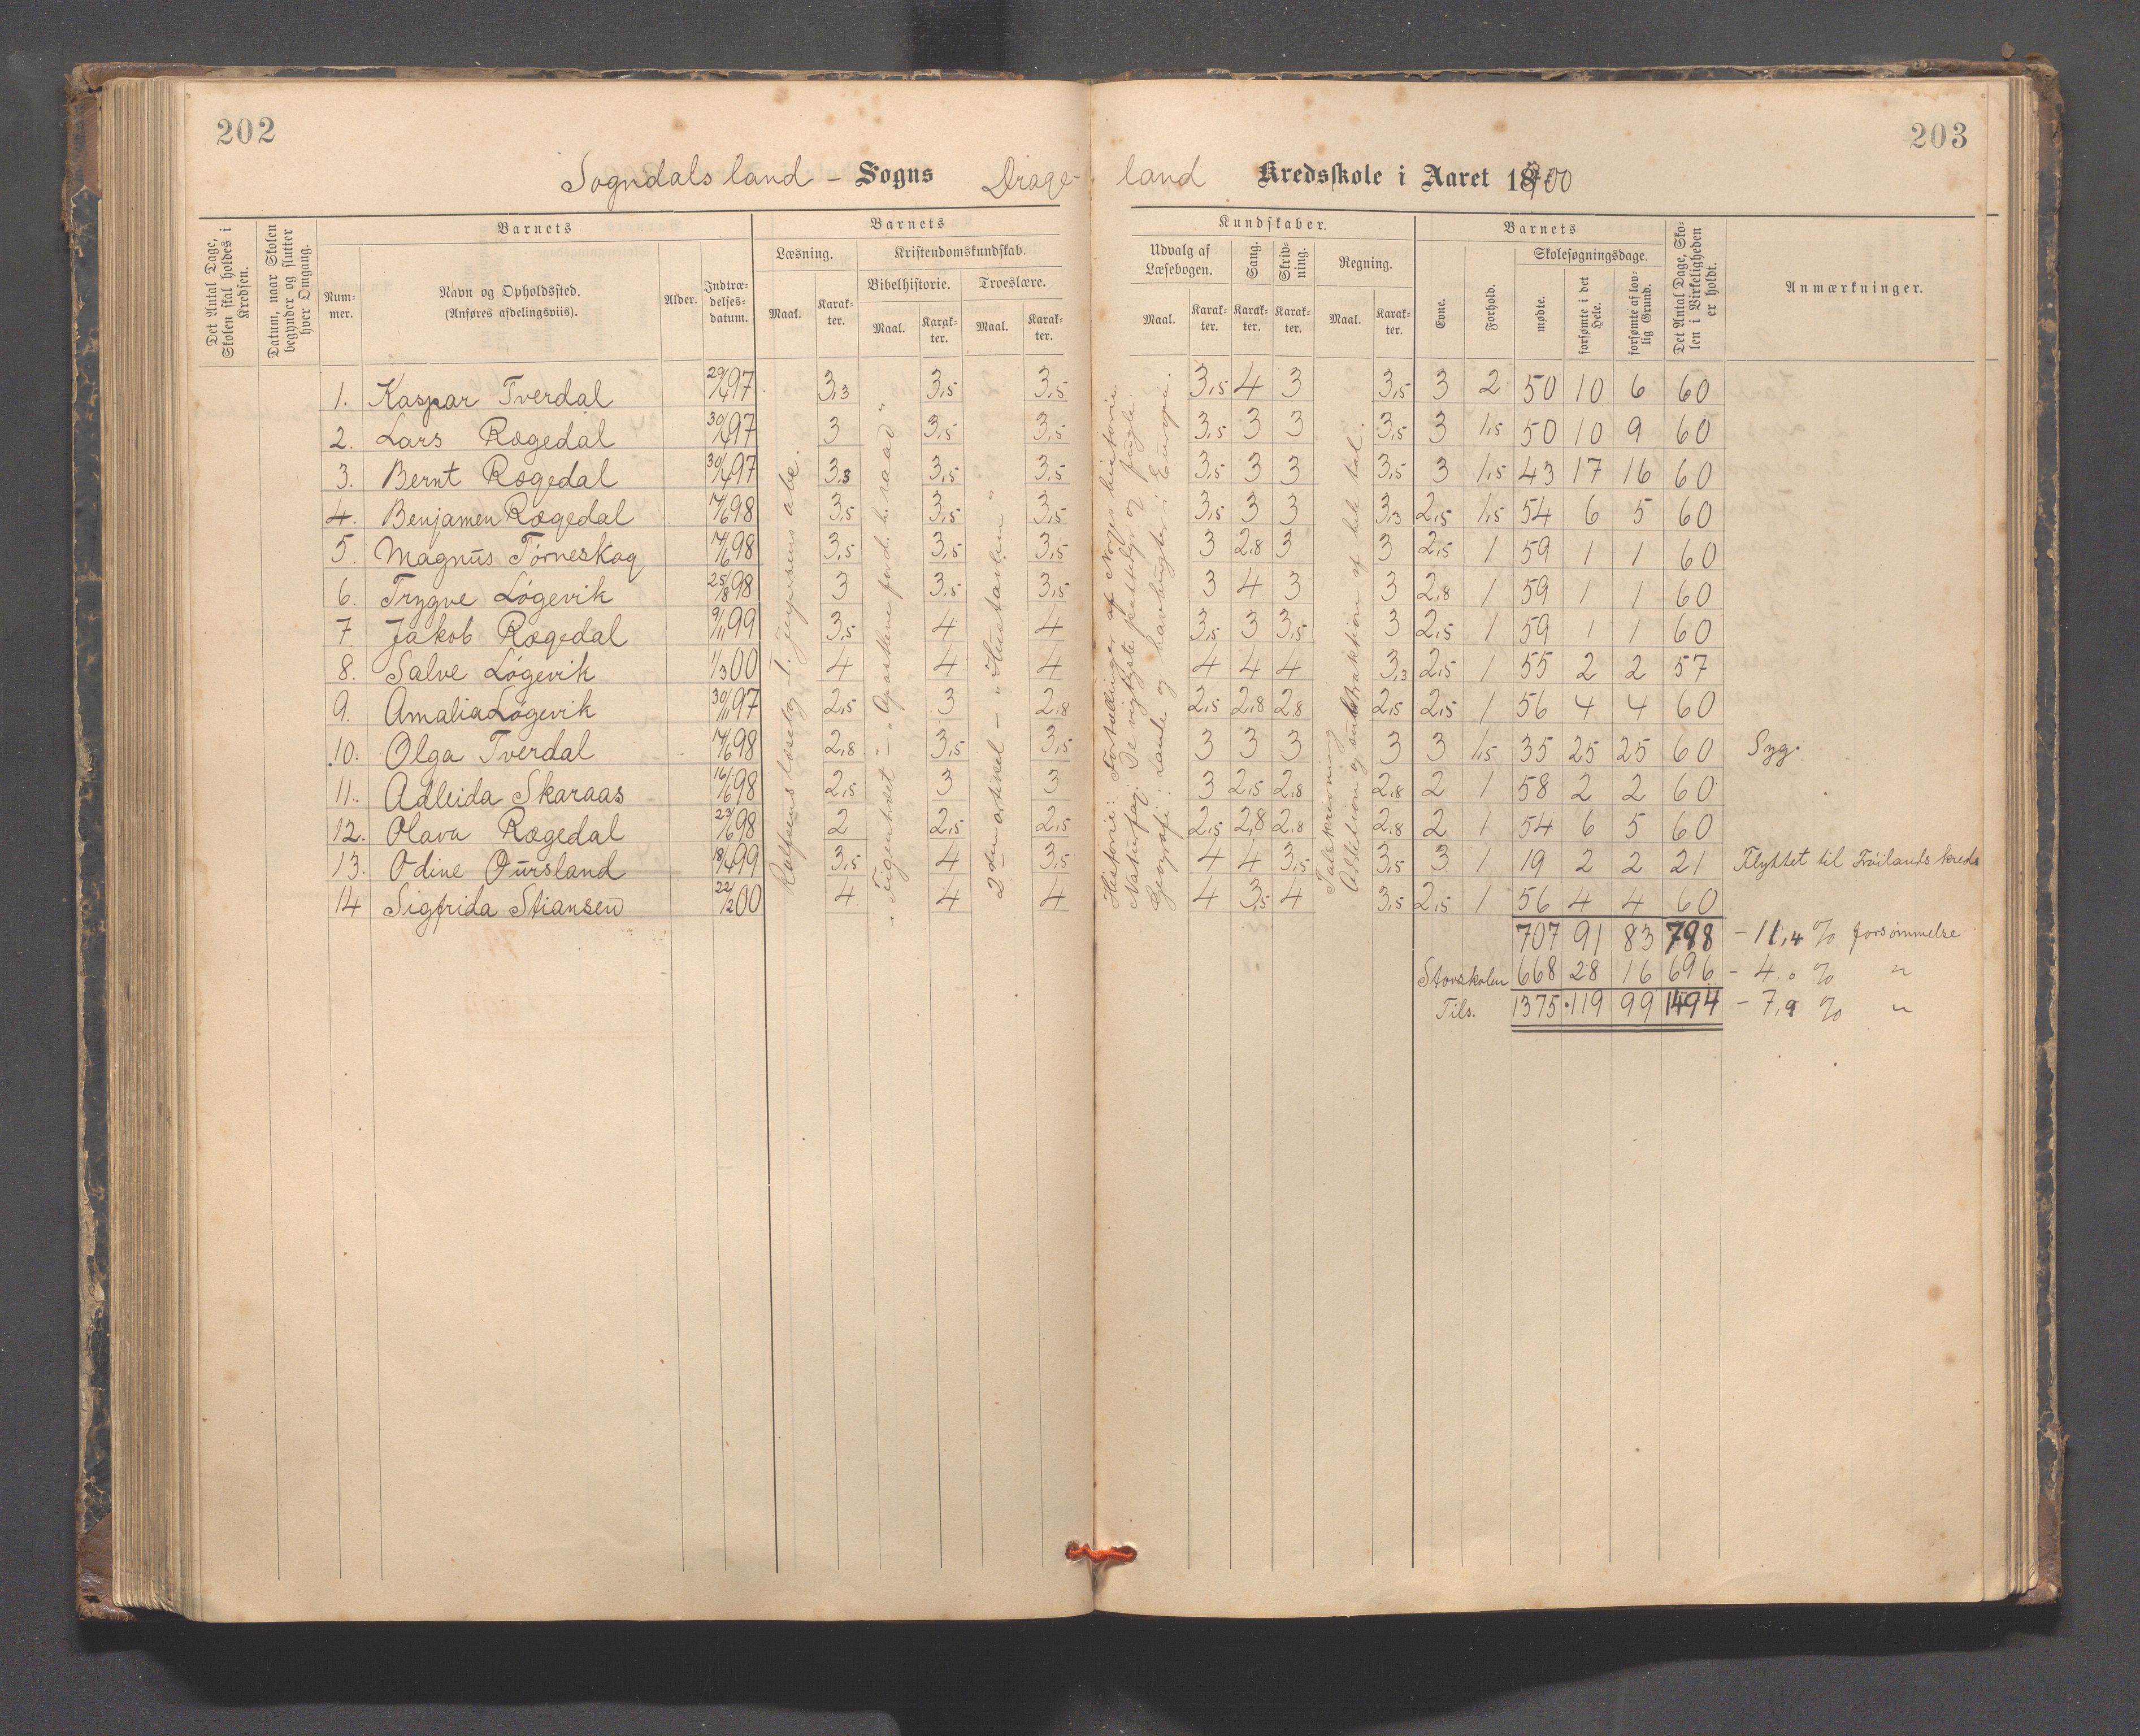 202
203
Sogndals land - Sogns Drage- land Kredsskole i Aaret 1900
Det Antal Dage, Skolen skal holdes i Kredsen.
Datum, naar Skolen begynder og slutter hver Omgang.
Barnets
Barnets
Kundskaber.
Barnets
Det Antal Dage, Skolen i Virkeligheden er holdt.
Anmærkninger.
Nummer.
Navn og Opholdssted.
(Anføres afdelingsviis).
Alder.
Indtrædelsesdatum.
Læsning.
Maal.
Karakter.
Kristendomskundskab.
Bibelhistorie.
Maal.
Karakter.
Troeslære.
Maal.
Karakter.
Udvalg af Læsebogen.
Maal.
Karakter.
Sang.
Karakter.
Skrivning.
Karakter.
Regning.
Maal.
Karakter.
Evne.
Forhold.
Skolesøgningsdage.
mødte.
forsømte i det Hele.
forsømte af lovlig Grund.
1. Kaspar Tverdal 29/4 97 3,3 3,5 3,5 3,5 4 3 3,5 3 2 50 10 6 60
2. Lars Rægedal 30/4 97 3 3,5 3,5 3,5 3 3 3,5 3 1,5 50 10 9 60
3. Bernt Rægedal 30/4 97 3,3 3,5 3,5 3,5 3 3 3,5 3 1,5 43 17 16 60
4. Benjamen Rægedal 14/6 98 3,5 3,5 3,5 3,5 3 3 3,3 2,5 1,5 54 6 5 60
5. Magnus Tørneskog 14/6 98 3,5 3,5 3,5 3 2,8 3 3 2,5 1 59 1 1 60
6. Trygve Løgevik 25/8 98 3 3,5 3,5 3 4 3 3 2,8 1 59 1 1 60
7. Jakob Rægedal 9/11 99 3,5 4 4 3,5 3 3,5 3 2,5 1 59 1 1 60
8. Salve Løgevik 1/3 00 4 4 4 4 4 4 3,3 2,5 1 55 2 2 57
9. Amalia Løgevik 30/11 97 2,5 3 2,8 2,5 2,8 2,8 2,5 2,5 1 56 4 4 60
10. Olga Tverdal 14/6 98 2,8 3,5 3,5 3 3 3 3 3 1,5 35 25 25 60 Syg.
11. Adleida Skaraas 16/6 98 2,5 3 3 3 2,5 2,8 2,8 2 1 58 2 2 60
12. Olava Rægedal 23/6 98 2 2,5 2,5 2,5 2,8 2,8 2,8 2 1 54 6 5 60
13. Odine Oursland 18/4 99 3,5 4 3,5 4 4 3,5 3,5 3 1 19 2 2 21 Flyttet til Frøilands kreds
14 Sigfrida Stiansen 22/2 00 4 4 4 4 3,5 4 3,5 2,5 1 56 4 4 60
Rolfsens læsebog - I. Jeppesens abc.
2den artikel - "Hustavlen"
Historie: Fortællinger af Norges historie.
Naturfag: De vigtigste pattedyr og fugle.
Geografi: Lande og havbugter i Europa.
Talskrivning
Addition og subtraktion af hele tal.
707 91 83 798 - 11,4 % forsømmelse
Storskolen 668 28 16 696 - 4,0 % "
Tils. 1375 119 99 1494 - 7,9 % "